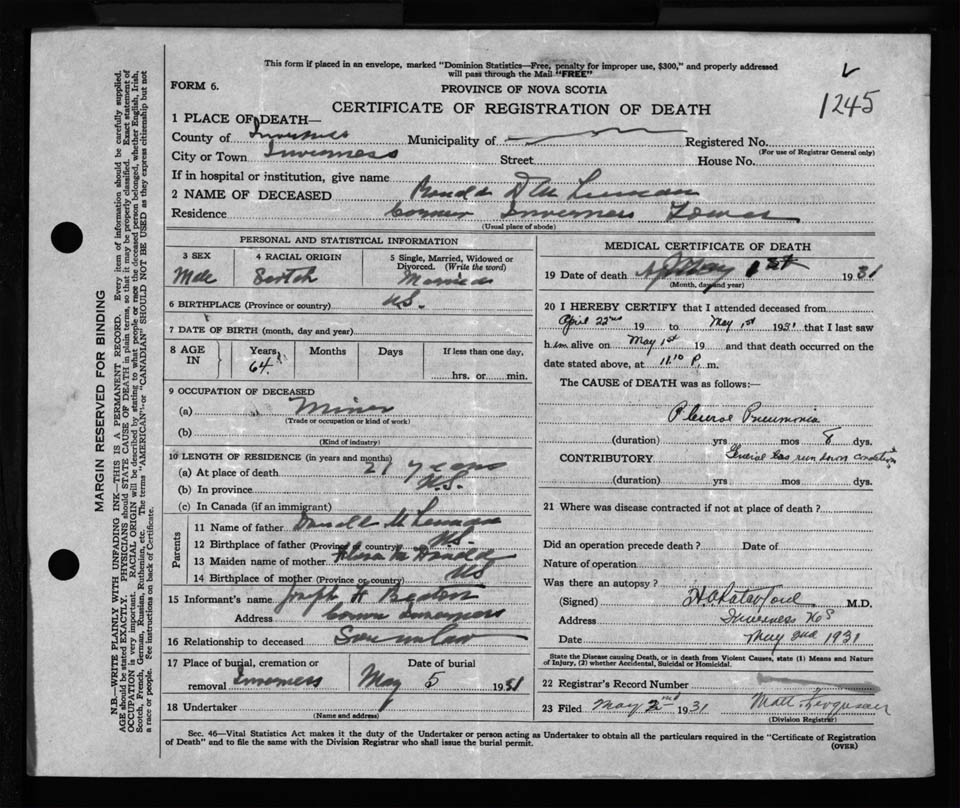 This form if placed in an envelope, marked "Dominion Statistics—Free, penalty for improper use, $300," and properly addressed
will pass through the Mail "FREE"
FORM 6.
PROVINCE OF NOVA SCOTIA
1245
CERTIFICATE OF REGISTRATION OF DEATH
1 PLACE OF DEATH—
County of Inverness Municipality of Registered No.
(For use of Registrar General only)
City or Town Inverness Street House No.
If in hospital or institution, give name
2 NAME OF DECEASED
Residence Inverness
(Usual place of abode)
PERSONAL AND STATISTICAL INFORMATION
3 SEX
Male
4 RACIAL ORIGIN
Scotch
5 Single, Married, Widowed or
Divorced. (Write the word)
Married
6 BIRTHPLACE (Province or country) N.S.
7 DATE OF BIRTH (month, day and year)
8 AGE IN
Years Months Days If less than one day,
64
hrs. or min.
9 OCCUPATION OF DECEASED
(a) Miner
(Trade or occupation or kind of work)
(b)
(Kind of industry)
10 LENGTH OF RESIDENCE (in years and months)
(a) At place of death 27 years
(b) In province N.S.
(c) In Canada (if an immigrant)
Parents
11 Name of father
12 Birthplace of father (Province or country) N.S.
13 Maiden name of mother
14 Birthplace of mother (Province or country) N.S.
15 Informant's name Joseph H Beaton
Address Inverness
16 Relationship to deceased Son in law
17 Place of burial, cremation or
removal Inverness
Date of burial
May 5 1931
18 Undertaker
(Name and address)
MEDICAL CERTIFICATE OF DEATH
19 Date of death May 1st 1931
(Month, day and year)
20 I HEREBY CERTIFY that I attended deceased from
April 22nd 19 to May 1st 1931 that I last saw
him alive on May 1st 19 and that death occurred on the
date stated above, at 11.10 P. m.
The CAUSE of DEATH was as follows:—
Pleuro Pneumonia
(duration) yrs mos 8 dys.
CONTRIBUTORY General run down condition
(duration) yrs mos dys.
21 Where was disease contracted if not at place of death?
Did an operation precede death? Date of
Nature of operation
Was there an autopsy?
(Signed) M.D.
Address Inverness N.S.
Date May 2nd 1931
State the Disease causing Death, or in death from Violent Causes, state (1) Means and Nature
of Injury, (2) whether Accidental, Suicidal or Homicidal.
22 Registrar's Record Number
23 Filed May 2nd 1931 Matt. Ferguson
(Division Registrar)
Sec. 46—Vital Statistics Act makes it the duty of the Undertaker or person acting as Undertaker to obtain all the particulars required in the "Certificate of Registration
of Death" and to file the same with the Division Registrar who shall issue the burial permit.
(OVER)
MARGIN RESERVED FOR BINDING
N.B.—WRITE PLAINLY WITH UNFADING INK—THIS IS A PERMANENT RECORD. Every item of information should be carefully supplied.
AGE should be stated EXACTLY. PHYSICIANS should STATE CAUSE OF DEATH in plain terms, so that it may be properly classified. Exact statement of
OCCUPATION is very important. RACIAL ORIGIN will be described by stating to what people or race the deceased person belonged, whether English, Irish,
Scotch, French, German, Russian, Ruthenian, etc. The terms "AMERICAN" or "CANADIAN" SHOULD NOT BE USED as they express citizenship but not
a race or people. See instructions on back of Certificate.